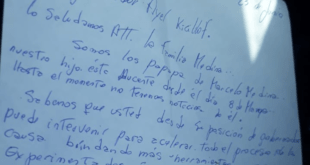 Axel Kicillof.
lo Saludamos Att. la familia Medina.
Somos los papas de Marcelo Medina
nuestro hijo éste desde el día 8 de Mayo.
Hasta el momento no tenemos noticias de él.
Sabemos que usted desde su posición de gobernador
puede intervenir para acelerar todo el proceso de la
causa brindando más herramientas